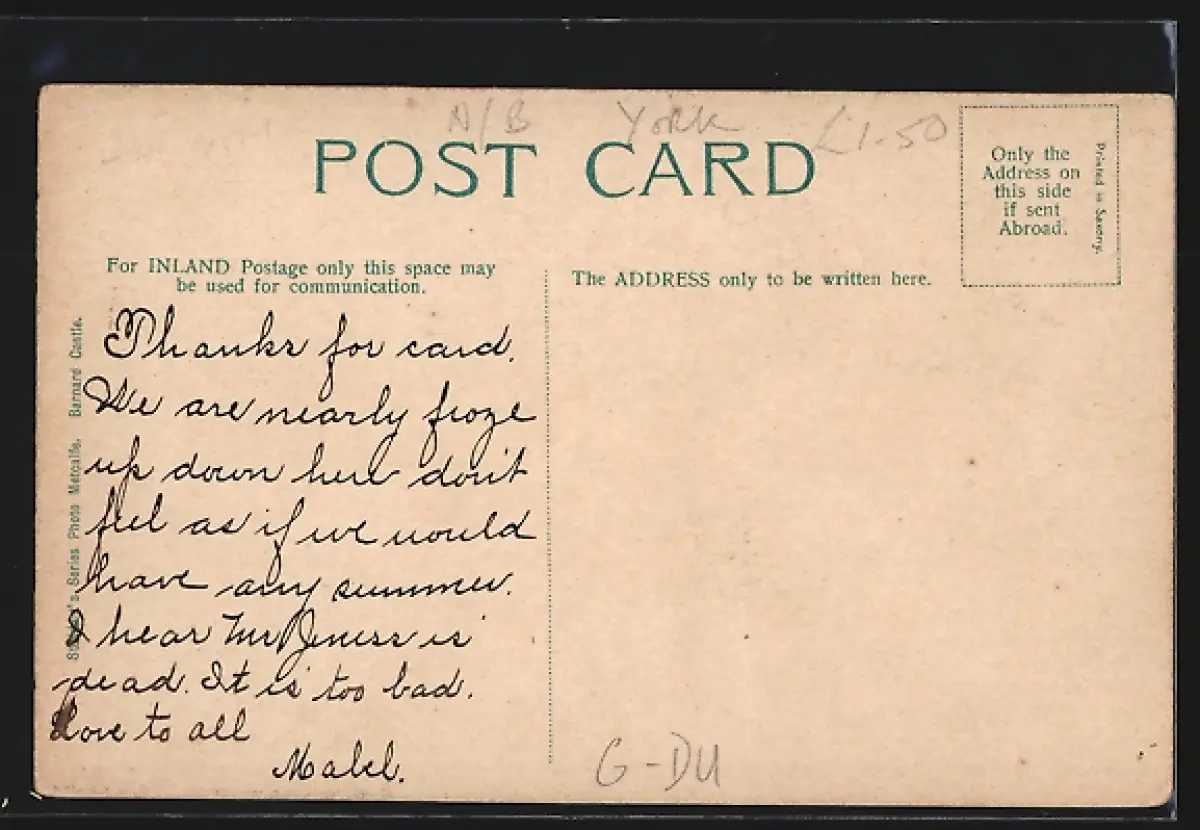 N/B York £1.50
POST CARD
Only the
Address on
this side
if sent
Abroad.
Printed in Saxony.
For INLAND Postage only this space may
be used for communication.
The ADDRESS only to be written here.
Series Photo Metcalfe. Barnard Castle.
Thanks for card.
We are nearly froze
up down here don't
feel as if we would
have any summer.
I hear Mr Jeness is
dead. It is too bad.
Love to all
Mabel.
G-DU